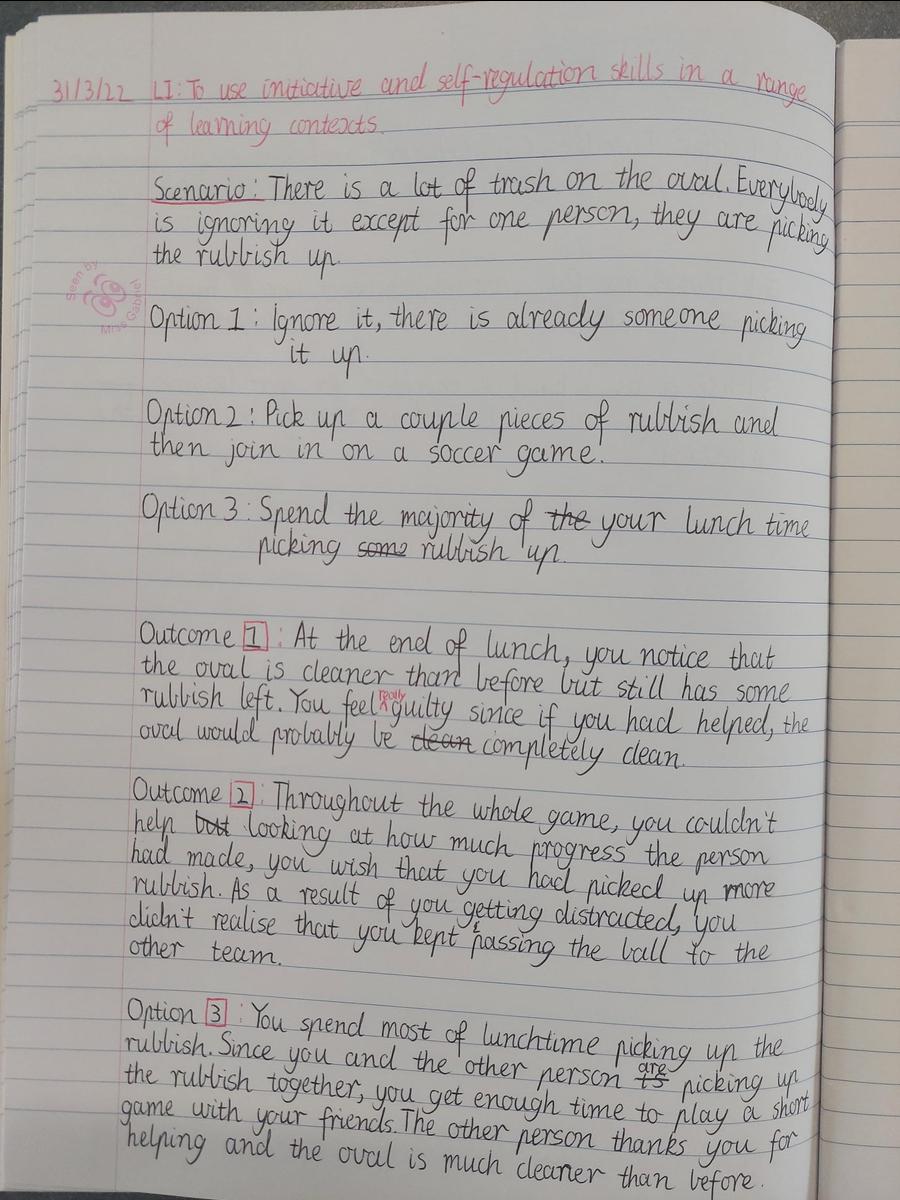 31/3/22 LI: To use initiative and self-regulation skills in a range
of learning contexts.
Scenario: There is a lot of trash on the oval. Everybody
is ignoring it except for one person, they are picking
the rubbish up.
Seen by
Miss Gabriel
Option 1: Ignore it, there is already someone picking
it up.
Option 2: Pick up a couple pieces of rubbish and
then join in on a soccer game.
Option 3: Spend the majority of the your lunch time
picking some rubbish up.
Outcome 1: At the end of lunch, you notice that
the oval is cleaner than before but still has some
rubbish left. You feel really guilty since if you had helped, the
oval would probably be clean completely clean.
Outcome 2: Throughout the whole game, you couldn't
help but looking at how much progress the person
had made, you wish that you had picked up more
rubbish. As a result of you getting distracted, you
didn't realise that you kept passing the ball to the
other team.
Option 3: You spend most of lunchtime picking up the
rubbish. Since you and the other person is are picking up
the rubbish together, you get enough time to play a short
game with your friends. The other person thanks you for
helping and the oval is much cleaner than before.